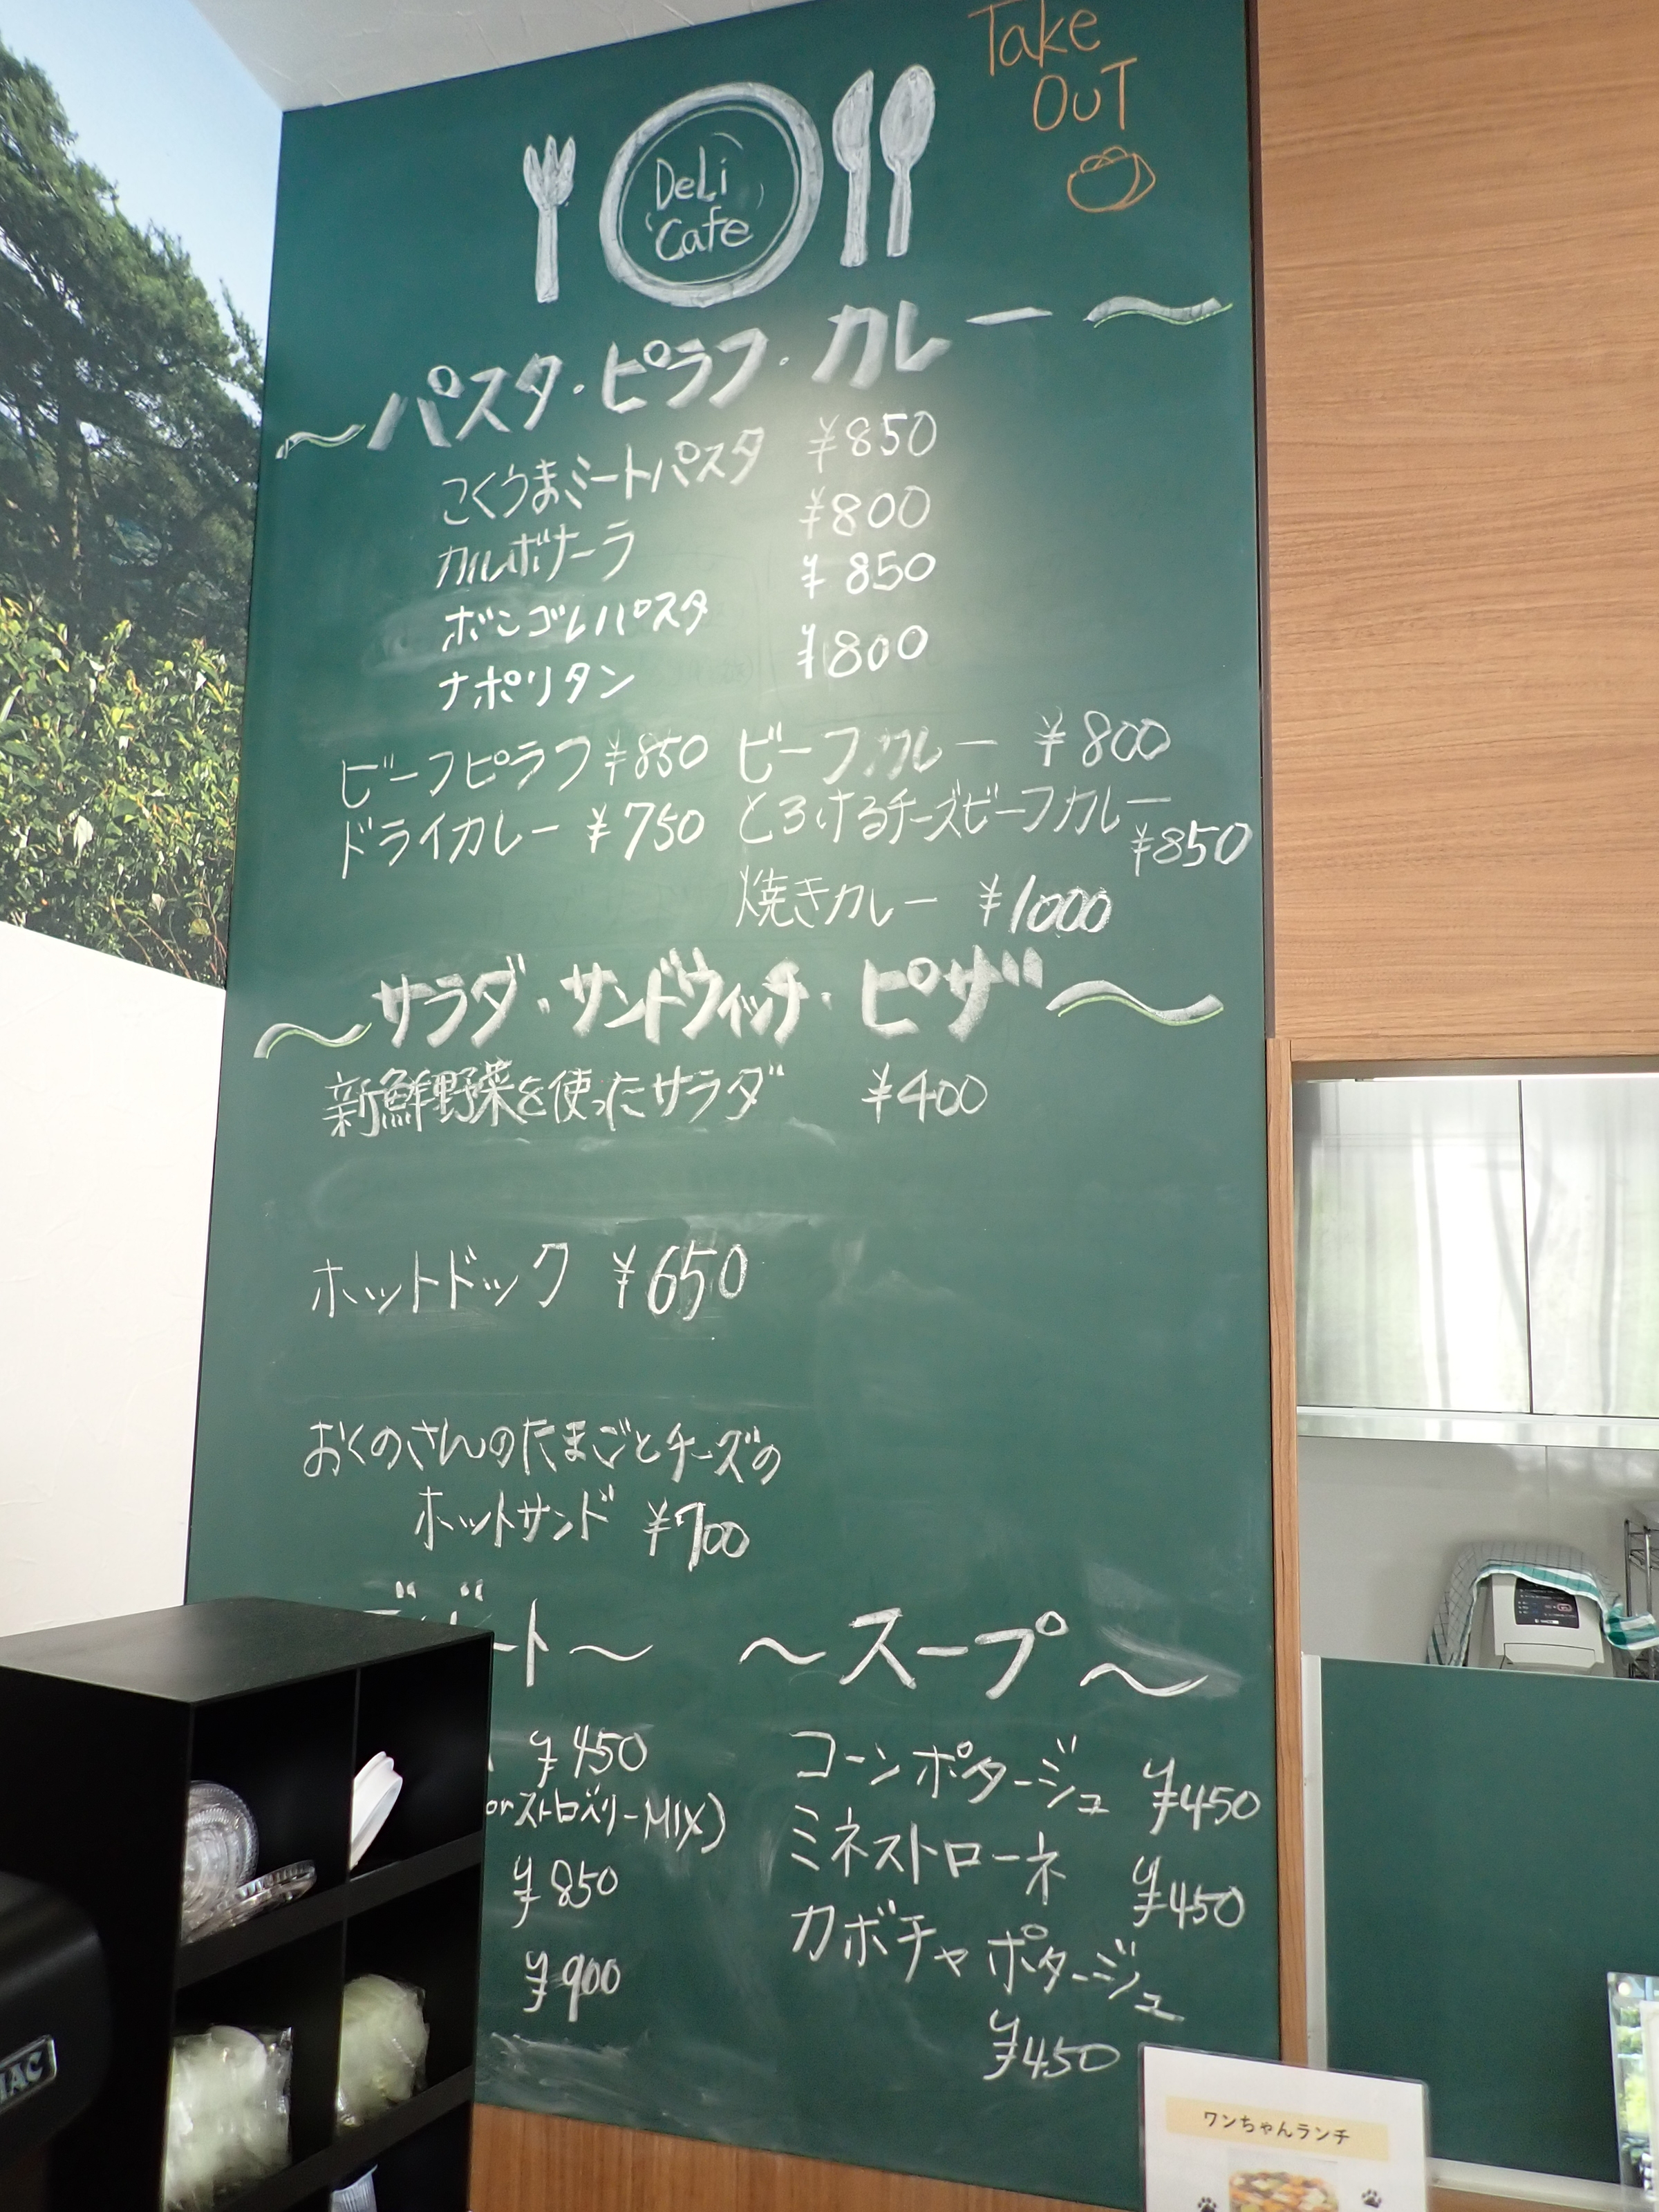 Take
OuT
DeLi
Cafe
〜パスタ・ピラフ・カレー〜
こくうまミートパスタ ¥850
カルボナーラ ¥800
ボンゴレパスタ ¥850
ナポリタン ¥800
ビーフピラフ ¥850 ビーフカレー ¥800
ドライカレー ¥750 とろけるチーズビーフカレー
¥850
焼きカレー ¥1000
〜サラダ・サンドウィッチ・ピザ〜
新鮮野菜を使ったサラダ ¥400
ホットドック ¥650
おくのさんのたまごとチーズの
ホットサンド ¥700
ート〜
¥450
orストロベリーMIX)
¥850
¥900
〜スープ〜
コーンポタージュ ¥450
ミネストローネ ¥450
カボチャポタージュ
¥450
ワンちゃんランチ